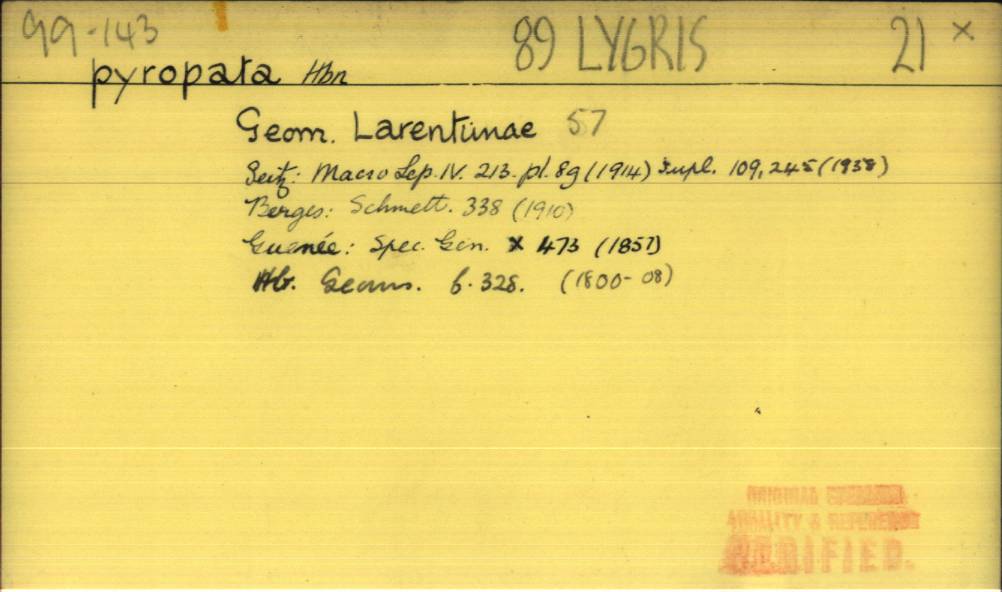 99-143 89 LYGRIS 21 x
pyropata Hbn
Geom. Larentiinae 57
Seitz: Macro Lep. IV. 213. pl. 8g (1914) Supl. 109, 245 (1938)
Berges: Schmett. 338 (1910)
Guenée: Spec. Gen. X 473 (1857)
Hb. Geoms. f. 328. (1800-08)
ORIGINAL
& REFERENCE
VERIFIED.